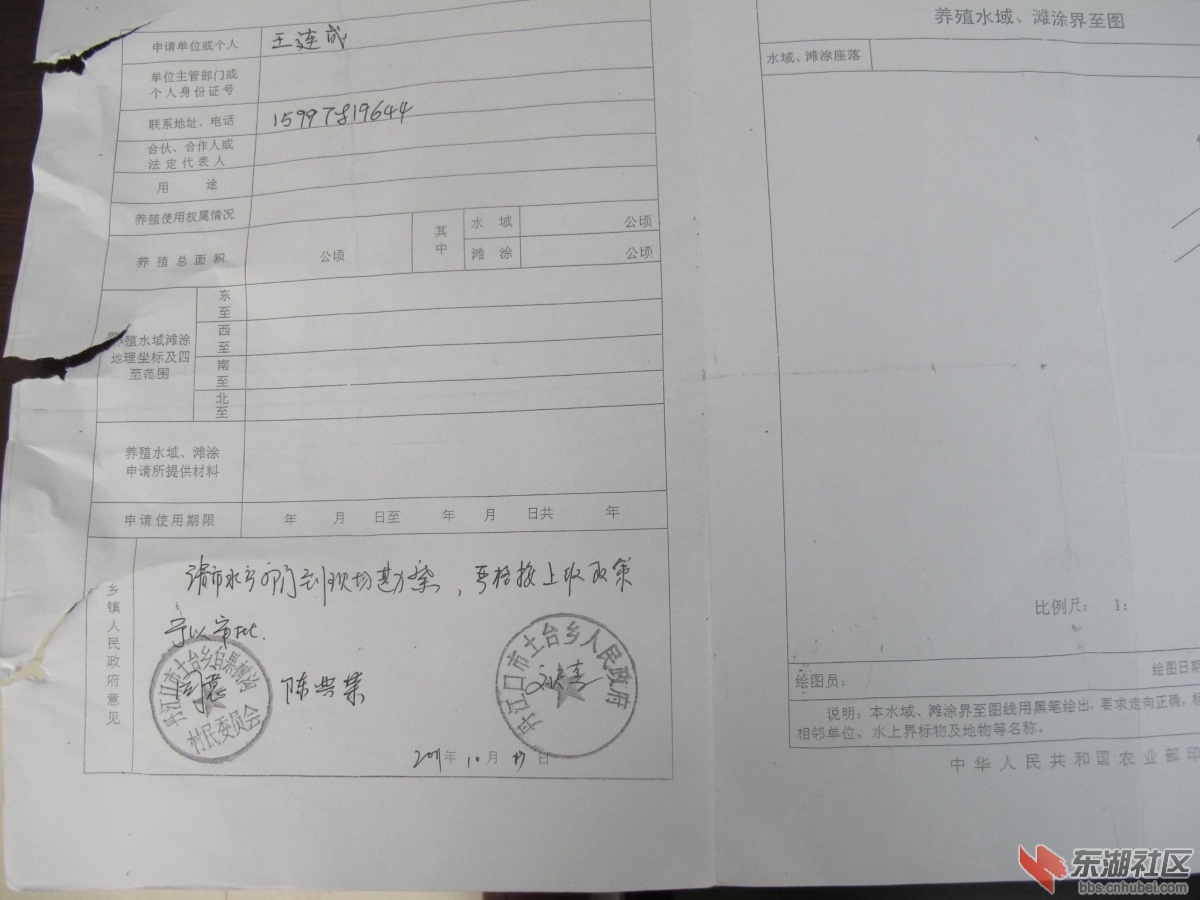 申请单位或个人 王连成
单位主管部门或
个人身份证号
联系地址、电话
合伙、合作人或
法定代表人
用 途
养殖使用权属情况
养殖总面积 公顷 其中 水域 公顷
滩涂 公顷
养殖水域滩涂
地理坐标及四
至范围
东至
西至
南至
北至
养殖水域、滩涂
申请所提供材料
申请使用期限 年 月 日至 年 月 日共 年
乡镇人民政府意见
请市水产部门到现场勘察，严格按上级政策
予以审批.
丹江口市土台乡白果树沟
村民委员会
同意
陈典荣
丹江口市土台乡人民政府
2011年10月 日
养殖水域、滩涂界至图
水域、滩涂座落
比例尺： 1：
绘图员：
绘图日期
说明：本水域、滩涂界至图线用黑笔绘出，要求走向正确，标
相邻单位、水上界标物及地物等名称。
中华人民共和国农业部印
东湖社区
bbs.cnhubei.com